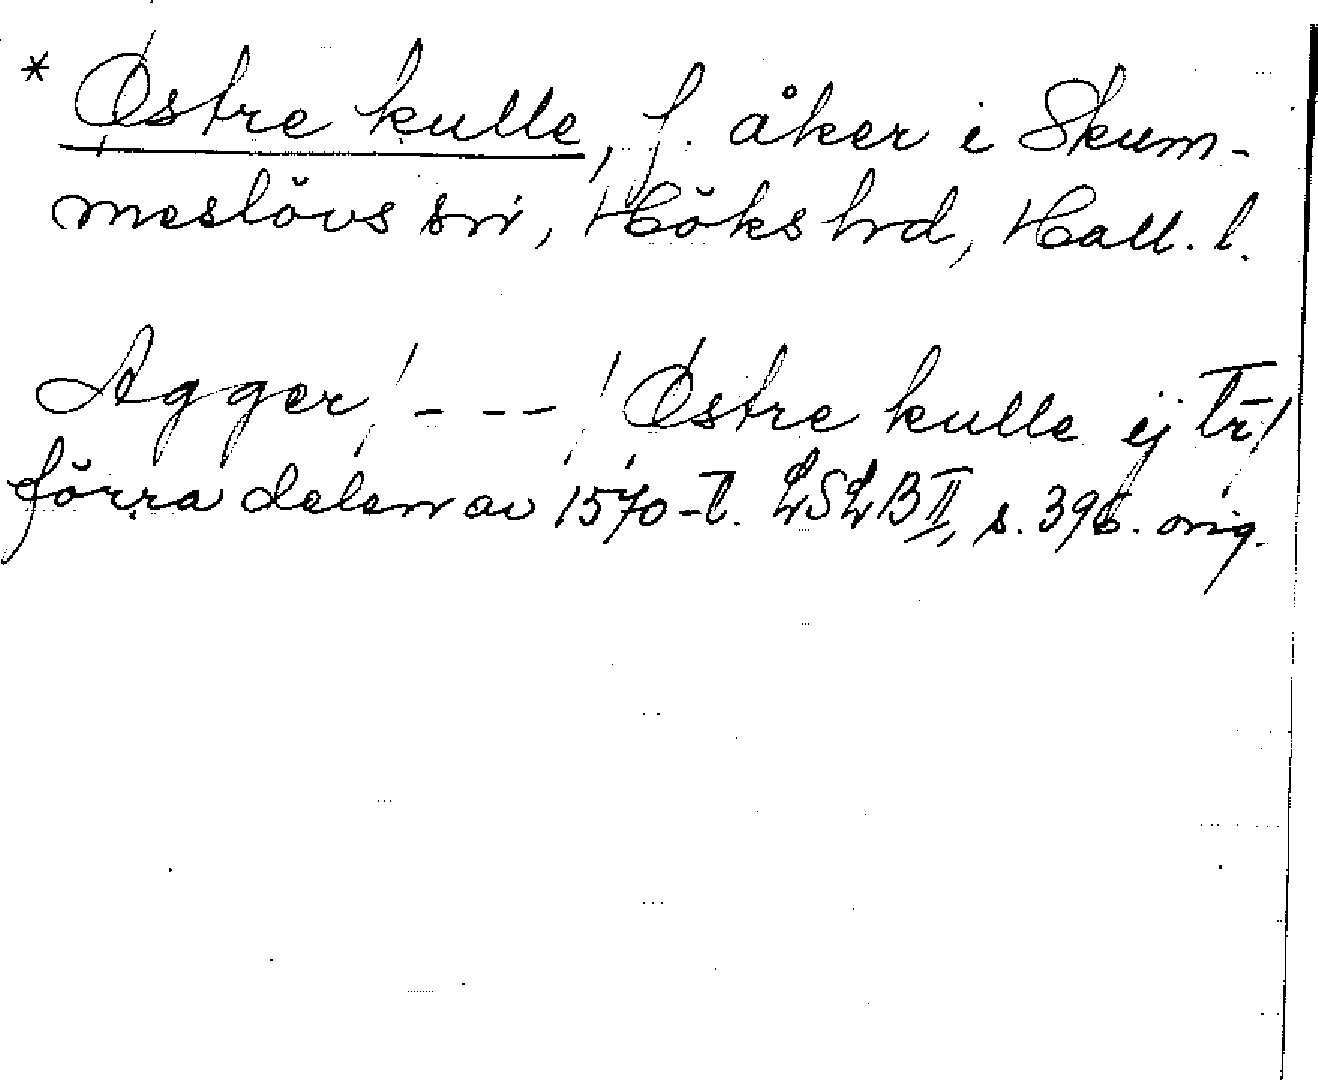 * Østre kulle, f. åker i Skum-
meslövs sn, Höks hrd, Hall. l.
Agger / - - - / Østre kulle ej tr /
förra delen av 1570-t. LSLB II, s. 396. orig.